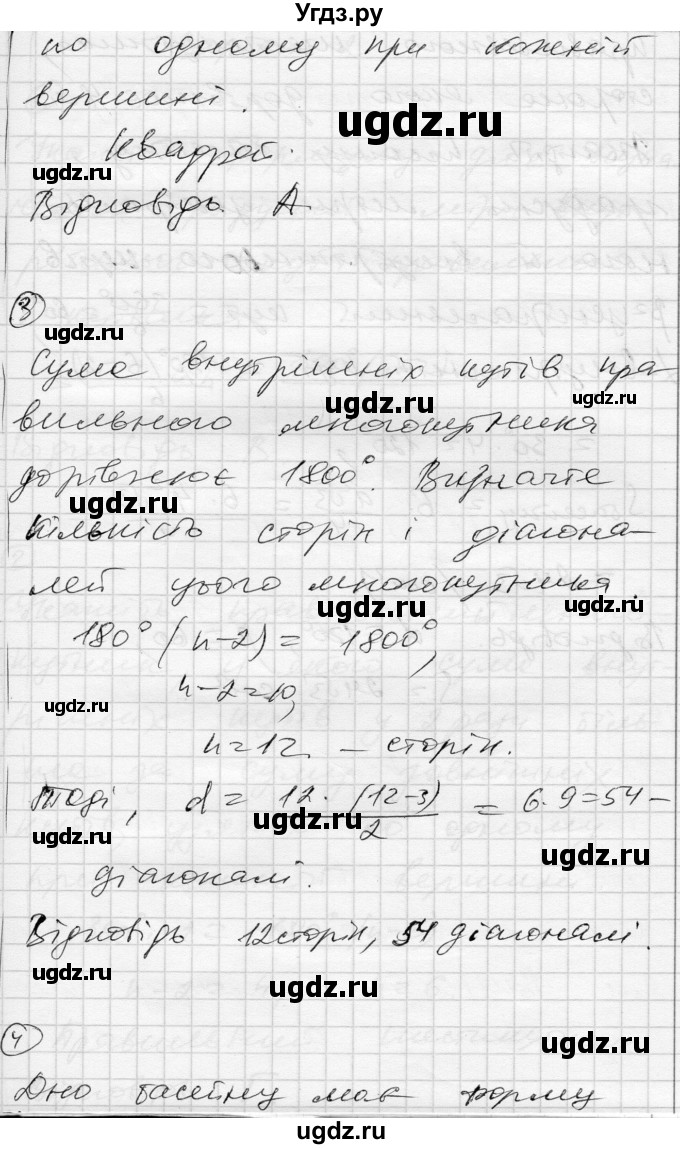 Угдз.ру
по одному при кожній
вершині.
ugdz.ru
Квадрат.
ugdz.ru
Відповідь А
ugdz.ru
3
ugdz.ru
Сума внутрішніх кутів пра-
ugdz.ru
вильного многокутника
дорівнює 1800°. Визначте
ugdz.ru
кількість сторін і діагона-
ugdz.ru
лей цього многокутника.
ugdz.ru
180° (n-2) = 1800°,
n-2=10,
ugdz.ru
n=12 – сторін.
Тоді, d = 12 · (12-3)/2 = 6·9=54 –
ugdz.ru
ugdz.ru
діагоналі.
Відповідь 12 сторін, 54 діагоналі.
ugdz.ru
ugdz.ru
4
ugdz.ru
Дно басейну має форму
ugdz.ru